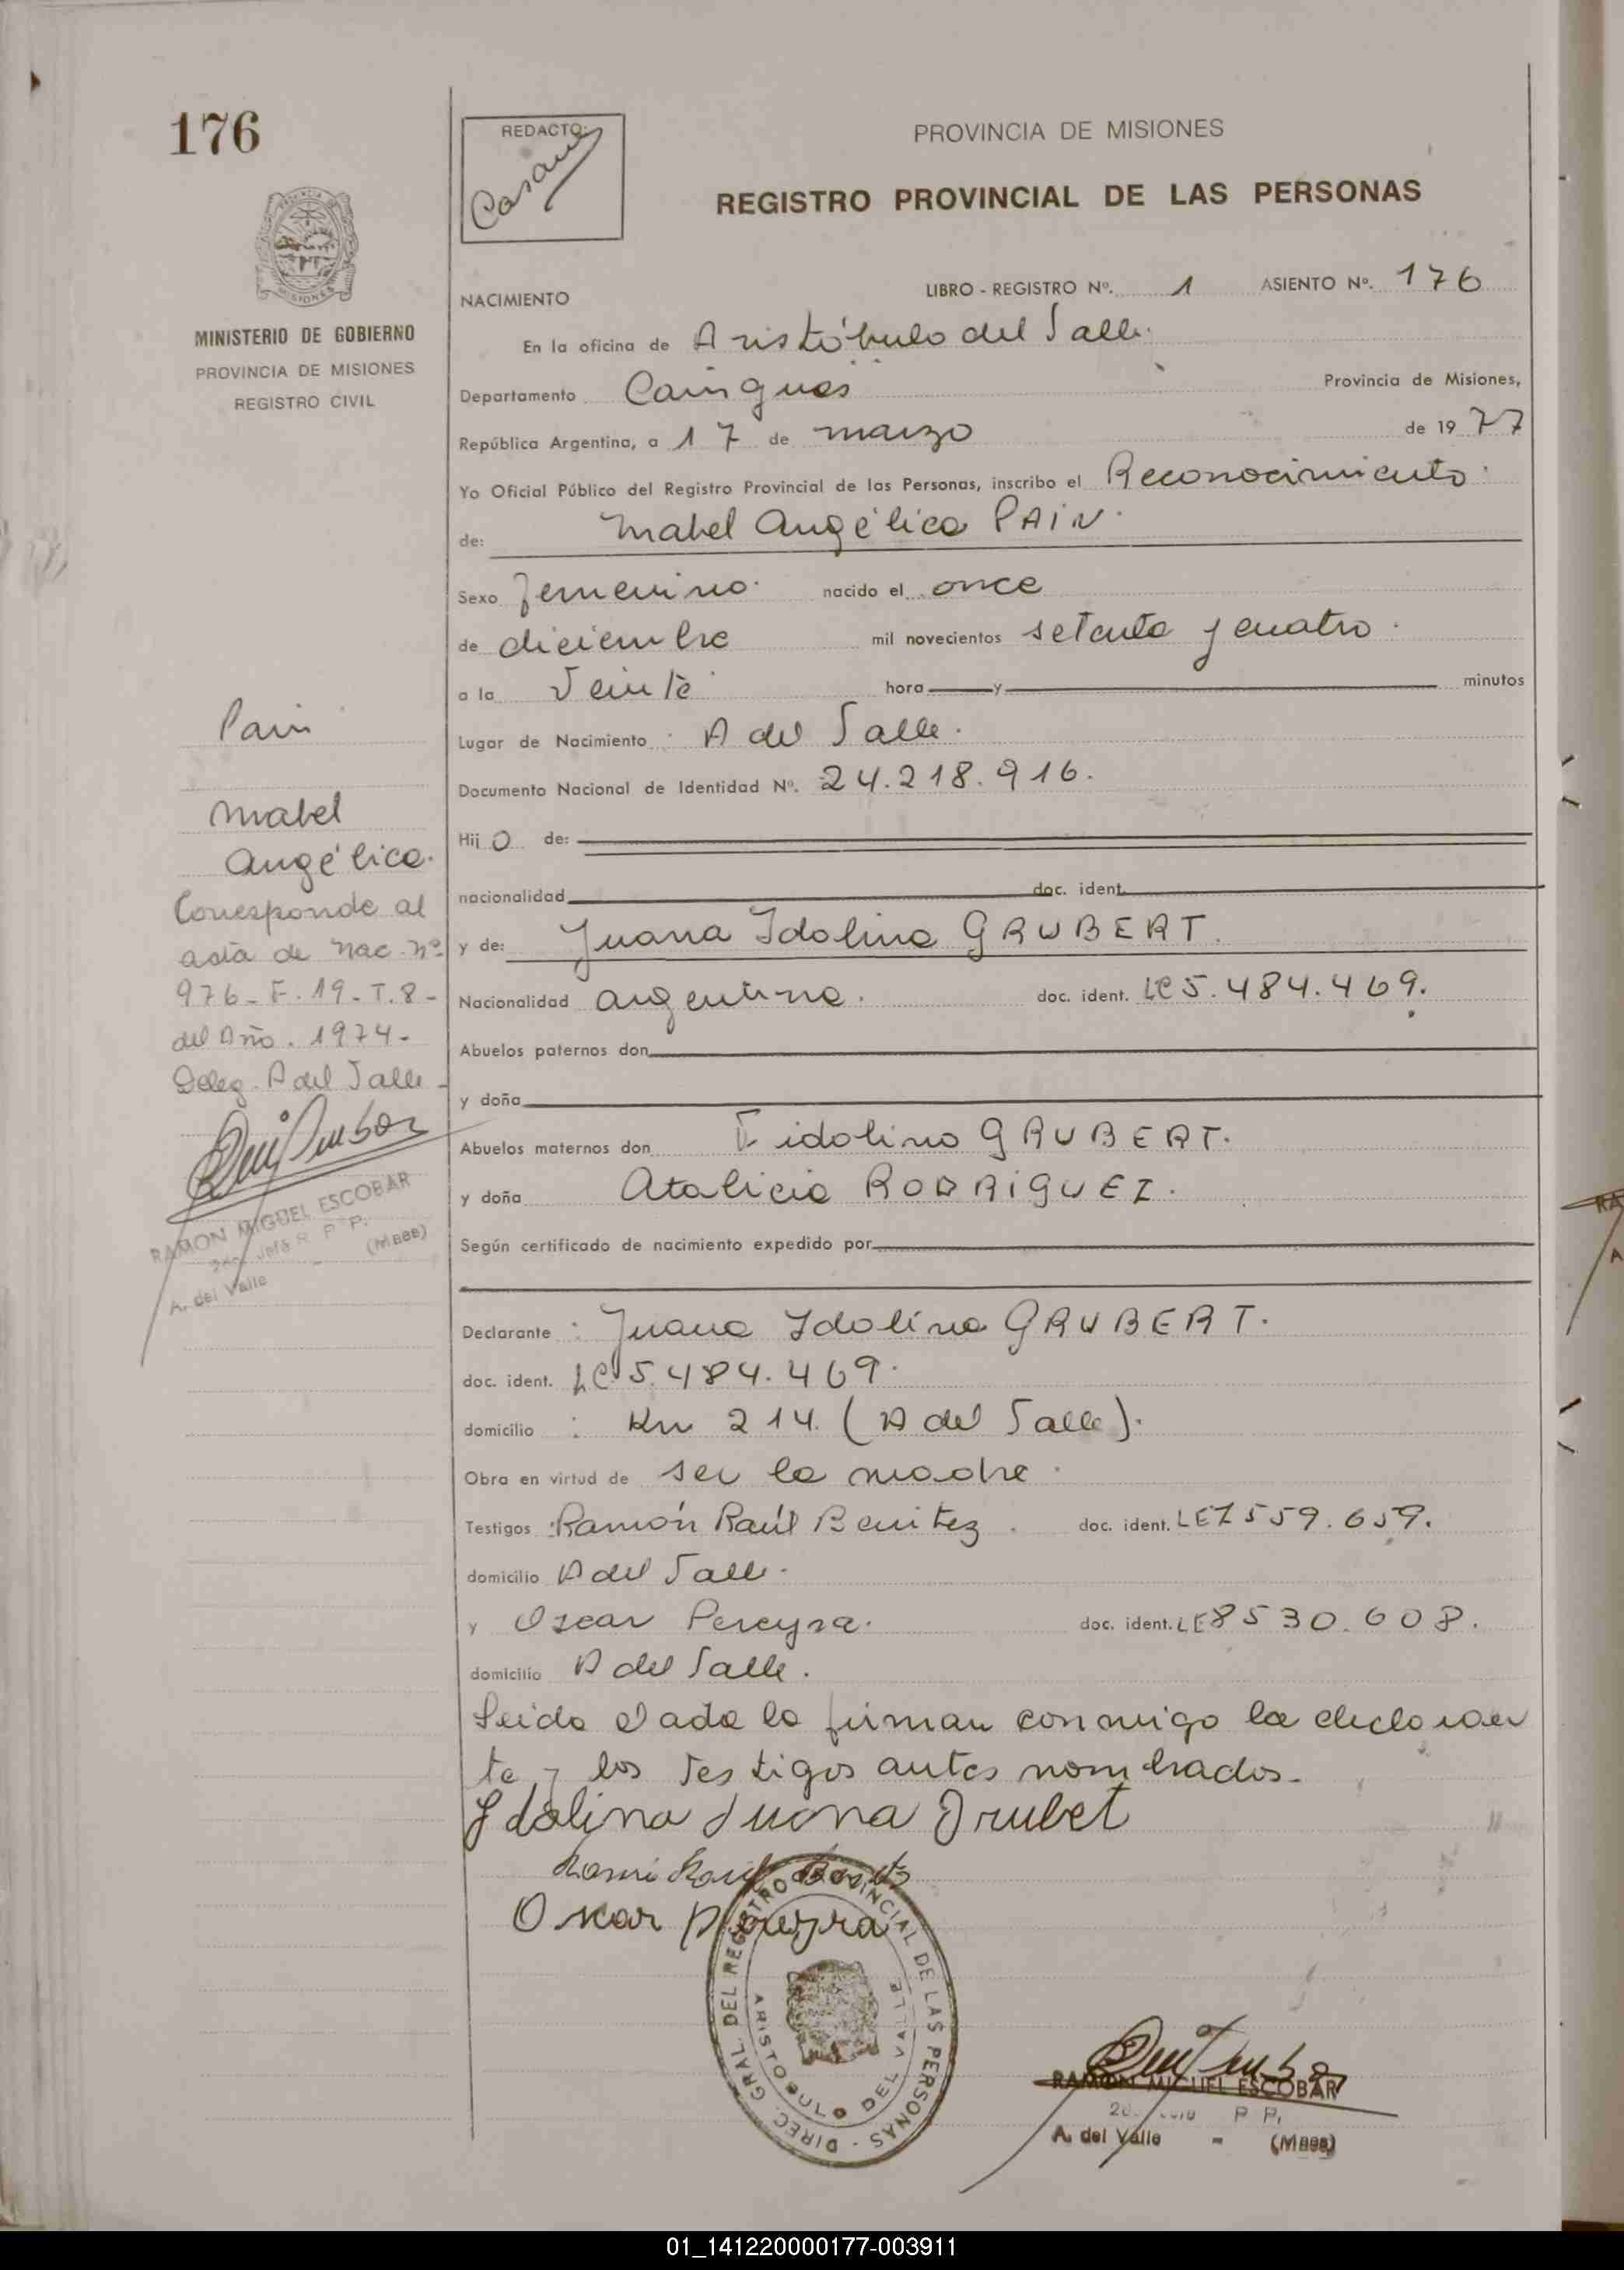 176
REDACTO:
PROVINCIA DE MISIONES
REGISTRO PROVINCIAL DE LAS PERSONAS
MISIONES
MINISTERIO DE GOBIERNO
PROVINCIA DE MISIONES
REGISTRO CIVIL
NACIMIENTO LIBRO - REGISTRO Nº. 1 ASIENTO Nº. 176
En la oficina de Aristóbulo del Valle.
Departamento Cainguas Provincia de Misiones,
República Argentina, a 17 de marzo de 1977
Yo Oficial Público del Registro Provincial de las Personas, inscribo el Reconocimiento
de: Mabel Angélica PAIN.
Sexo femenino. nacido el once
de diciembre mil novecientos setenta y cuatro.
a la veinte hora y minutos
Lugar de Nacimiento A del Valle.
Documento Nacional de Identidad Nº. 24.218.916.
Hij O de:
nacionalidad doc. ident.
y de: Juana Idolina GRUBERT.
Nacionalidad argentina. doc. ident. LC 5.484.469.
Abuelos paternos don
y doña
Abuelos maternos don Fidolino GRUBERT.
y doña Atalicia RODRIGUEZ.
Según certificado de nacimiento expedido por
Declarante : Juana Idolina GRUBERT.
doc. ident. LC 5.484.469.
domicilio : Km 214. (A del Valle).
Obra en virtud de ser la madre.
Testigos : Ramón Raúl Benitez. doc. ident. LE 7559.659.
domicilio A del Valle.
y Oscar Pereyra. doc. ident. LE 8530.608.
domicilio A del Valle.
Leida el acta la firman conmigo la declaran
te y los testigos antes nombrados.
Idolina Juana Grubet
Oscar Pereyra
Pain
Mabel
Angélica.
Corresponde al
acta de Nac. Nº
976 - F. 19 - T. 8 -
del Año. 1974 -
Deleg. A del Valle -
RAMON MIGUEL ESCOBAR
R P P.
A. del Valle - (Mnes)
DIREC. GRAL. DEL REGISTRO PROVINCIAL DE LAS PERSONAS -
ARISTOBULO DEL VALLE
RAMON MIGUEL ESCOBAR
P P.
A. del Valle - (Mnes)
01_141220000177-003911